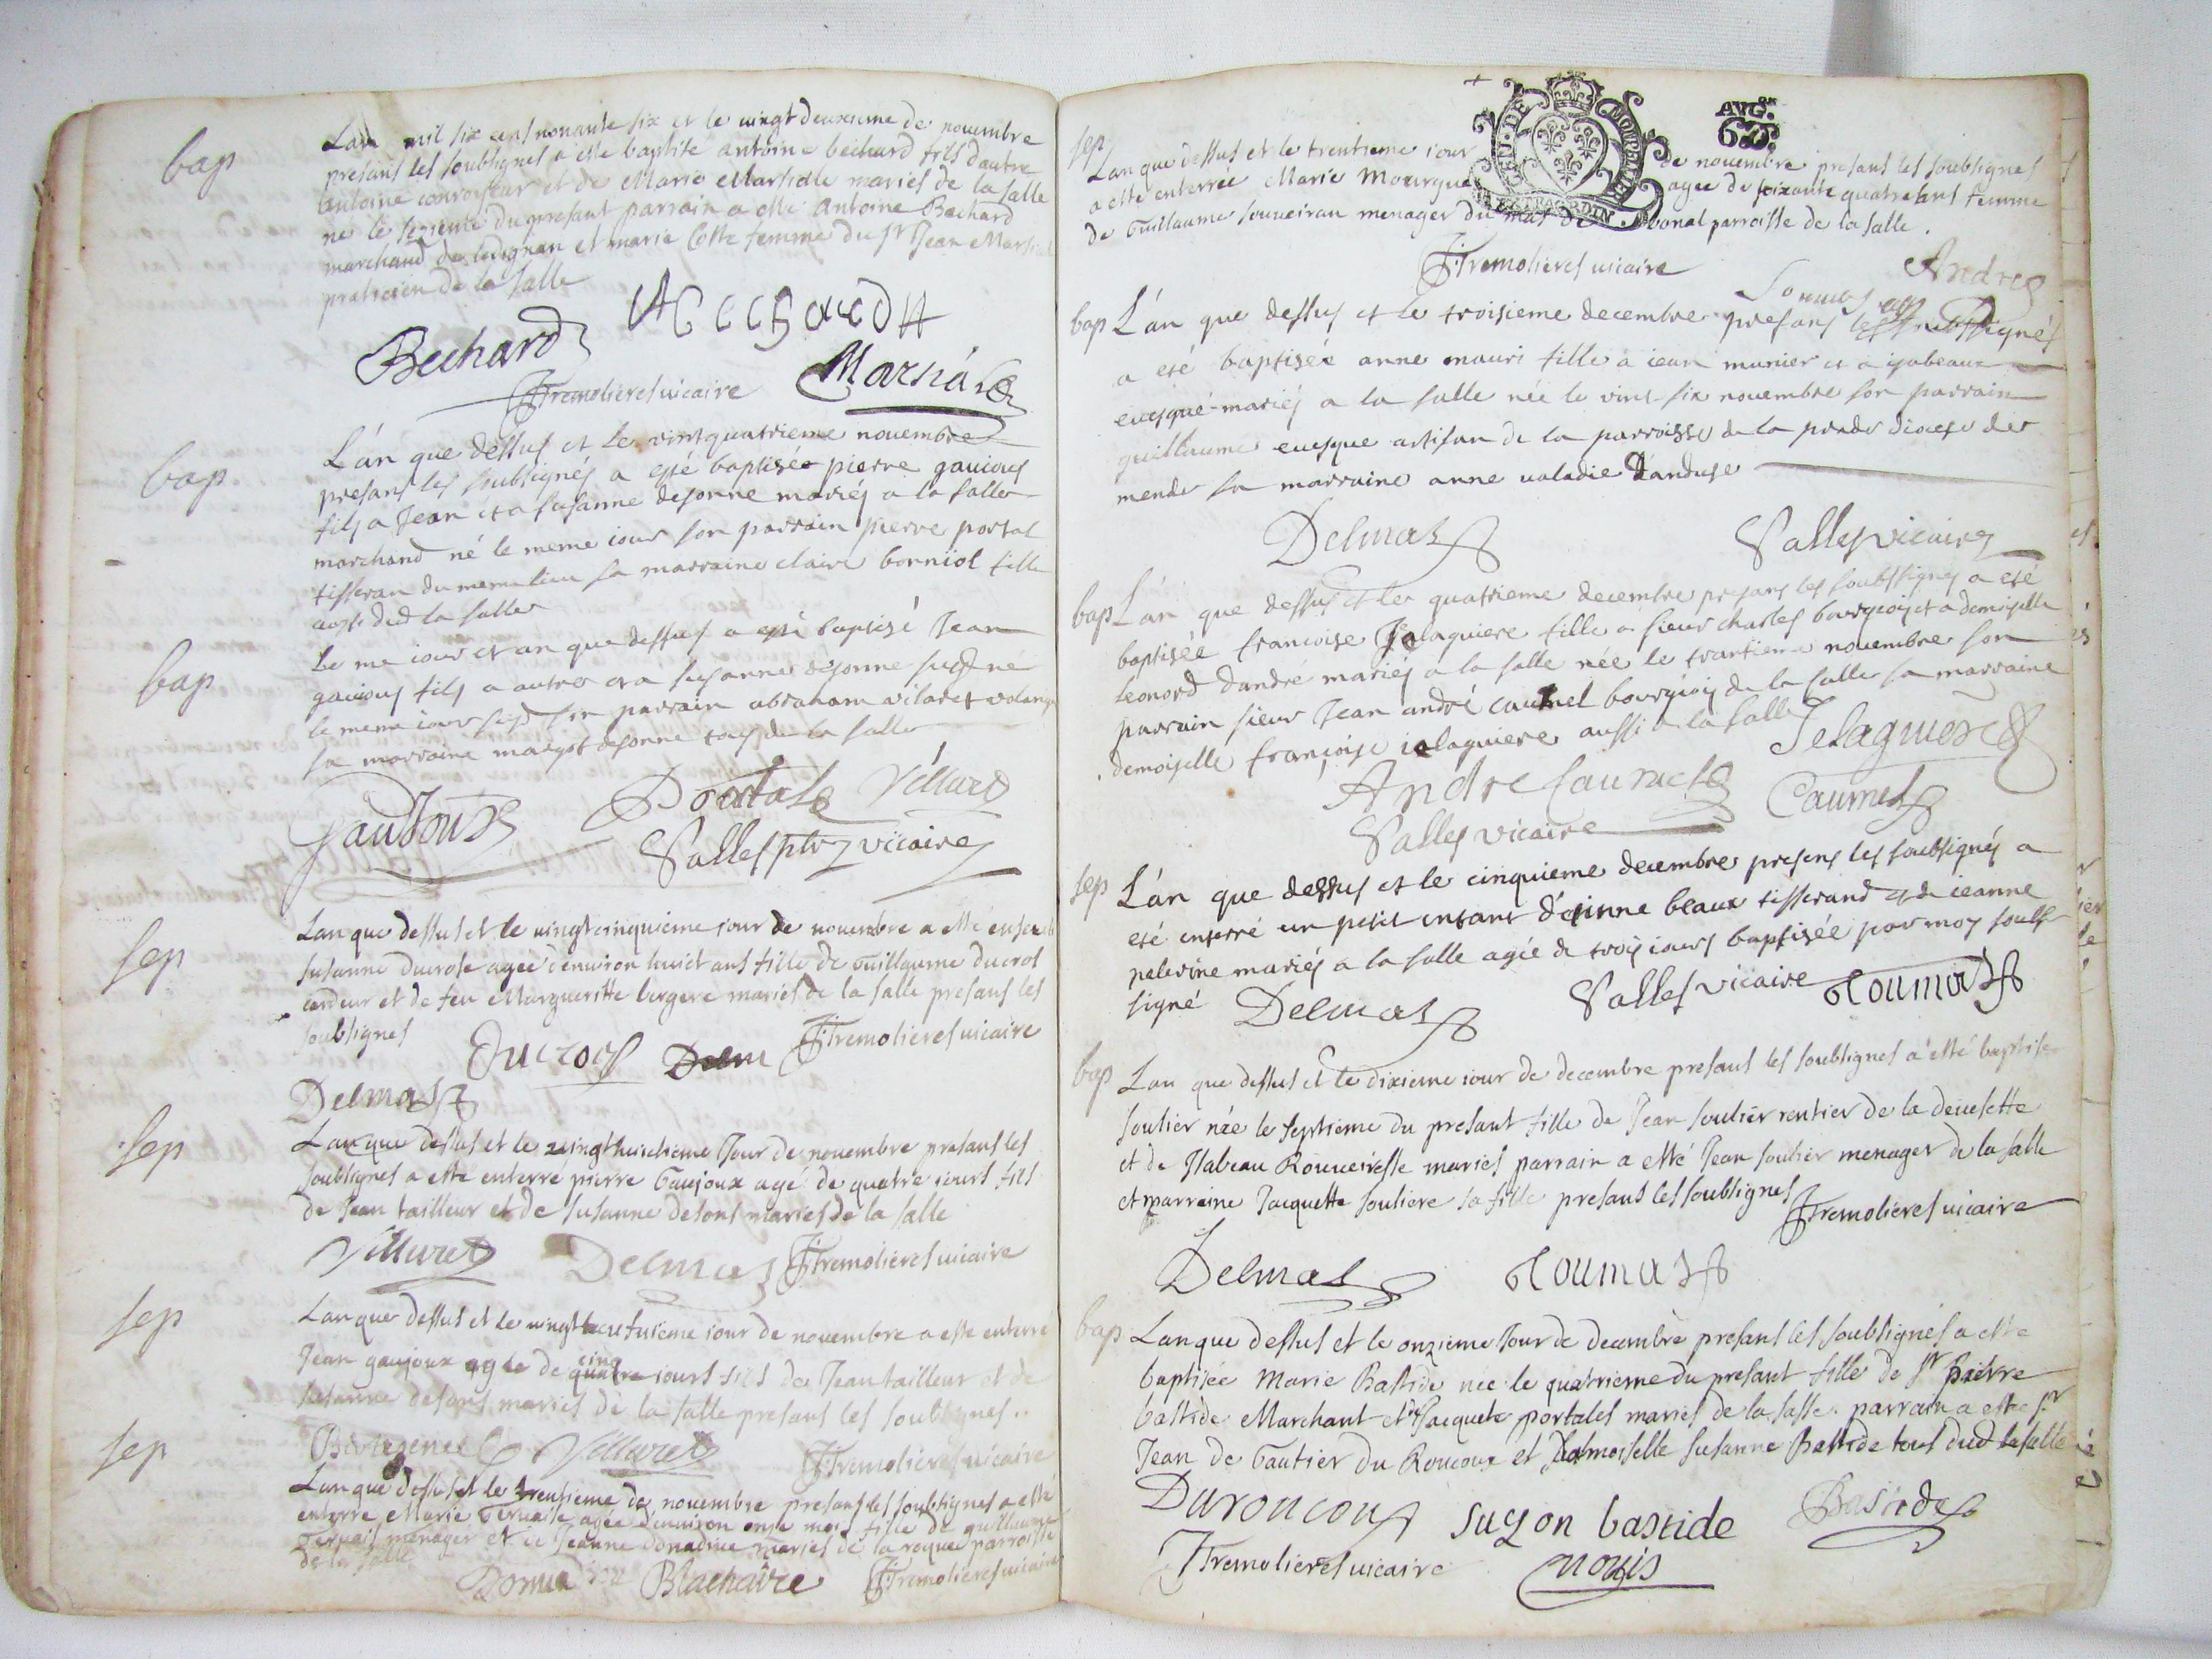 bap
Lan mil six cens nonante six et le vingt deuxieme de novembre
presans les soubsignes a este baptise antoine bechard fils dautre
antoine conroyeur et de Marie Marsialle maries de la salle
ne le sezieme du presant parrain a esté Antoine Bechard
marchand de ledignan et marie Coste femme du sr Jean Marsial
praticien de la salle
Bechard
Tremolieres vicaire Marsial
bap
L'an que dessus et le vintquatrieme novembre
presans les soubsignés a esté baptisée pierre gauious
fils a Jean et a susanne desonne mariés a la salle
marchand né le meme iour son parrain pierre portal
tisseran du meme lieu sa marraine claire borniol fille
aussi dud la salle
bap
Le me iour et an que dessus a esté baptisé Jean
gauious fils a autre et a susanne desonne susd ne
le meme iour susd son parrain abraham vilaret
sa marraine margot desonne tous de la salle
Gaujoux Portal Villaret
Salles ptre vicaire
sep
Lan que dessus et le vingt cinquieme iour de novembre a esté
susanne ducrose agee denuiron huict ans fille de Guillaume ducros
cardeur et de feu Margueritte bergere maries de la salle presans les
soubsignes
Ducros Delm Tremolieres vicaire
Delmas
sep
Lan que dessus et le vingt huictieme Jour de novembre presans les
soubsignes a este enterré pierre Gaujoux agé de quatre iours fils
de Jean tailleur et de susanne desons maries de la salle
Villaret Delmas Tremolieres vicaire
sep
Lan que dessus et le vingt neufuieme iour de novembre a este enterre
Jean gaujoux agée de quatre cinq iours fils de Jean tailleur et de
susanne desons maries de la salle presans les soubsignes
Villaret Tremolieres vicaire
sep
Lan que dessus et le trentieme de novembre presans les soubsignes a esté
enterre Marie Gervaise agée denuiron onse mois fille de guillaume
Gervais menager et de Jeanne Donadine maries de la roque parroisse
de la salle
Blachaire Tremolieres vicaire
GEN. DE MONTPELLIER
EXTRAORDIN.
AVG.
sep
Lan que dessus et le trentieme iour de novembre presans les soubsignes
a esté enterrée Marie Mourgue agee de soixante quatre ans femme
de Guillaume souueiran menager du mas de bonal parroisse de la salle.
Tremolieres vicaire Andre
bap
L'an que dessus et le troisieme decembre presans les soubsignés
a eté baptisée anne mauri fille a iean munier et a ysabeau
euesque mariés a la salle née le vint six novembre son parrain
guillaume euesque artisan de la parroisse de la prade diocese de
mende sa marraine anne valadie danduse
Delmas Salles vicaire
bap
L'an que dessus et le quatrieme decembre presans les soubssignes a eté
baptisée francoise Jalaguiere fille a sieur charles bourgiois et a demiselle
leonord dandré mariés a la salle née le trantieme novembre son
parrain sieur Jean andré caumel bourgiois de la salle sa marraine
demoiselle françoise ialaguiere aussi de la salle
Andre Caumel Jelaguiere
Salles vicaire Caumel
sep
L'an que dessus et le cinquieme decembre presens les soubsignés a
eté enterré un petit enfant d'etienne beaux tisserand et de ieanne
pelerine mariés a la salle agée de trois iours baptisée par moy soub
signé
Delmas Salles vicaire Toumas
bap
Lan que dessus et le dixieme iour de decembre presans les soubsignes a esté baptise
soulier née le septieme du presant fille de Jean soulier rentier de la deuesette
et de Isabeau Rouueiresse maries parrain a esté Jean soulier menager de la salle
et marraine Jacquette souliere sa fille presans les soubsignes Tremolieres vicaire
Delmas Toumas
bap
Lan que dessus et le onzieme Jour de decembre presans les soubsignés a esté
baptisée Marie Bastide née le quatrieme du presant fille de sr pierre
bastide Marchant et de Jacquete portales maries de la salle. parrain a este sr
Jean de Gautier du Roucoux et Damoiselle susanne Bastide tous dud lasalle
Duroucous suson bastide Bastide
Tremolieres vicaire nogis